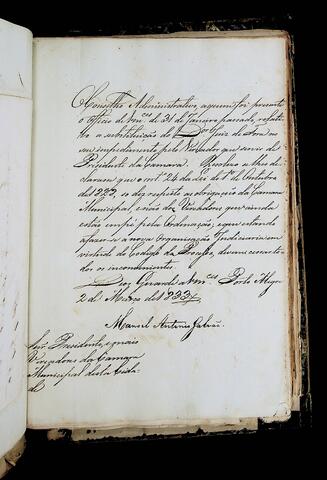 O Conselho Administractivo, a quem foi presente
o Officio de V.mces de 31 de Janeiro passado, relativo
a substituição do Dor Juiz de Fora no
seu impedimento pelo Vereador que servir de
Presidente da Camara Resolveo se lhes de-
clarasse que o artº 24 da Lei de 1º de Outubra
de 1828, só diz respeito as obrigações da Camara
Municipal, e não dos Vereadores que ainda
estão em pé pela Ordenação, e que estando
a fazer-se a nova Organisação Judiciaria em
virtude do Codigo do Processo, devem cessar to-
dos os inconvenientes.
Deos Guarde a V.mces Porto Alegre
2 de Março de 1833
Manoel Antonio Galvão
Snr. Presidente, e mais
Vereadores da Camara
Municipal desta Cida-
de